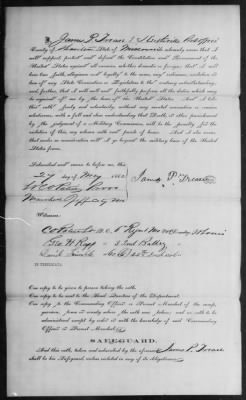 I, James P. Treace of
County of State of Missouri do solemnly swear that I
will support, protect and defend the Constitution and Government of the
United States against all enemies, whether domestic or foreign; that I will
bear true faith, allegiance and loyalty to the same, any ordinance, resolution or
law of any State Convention or Legislature to the contrary notwithstanding;
and further, that I will well and faithfully perform all the duties which may
be required of me by the laws of the United States. And I take
this oath freely and voluntarily, without any mental reservation or evasion
whatsoever, with a full and clear understanding that Death, or other punishment
by the judgment of a Military Commission, will be the penalty for the
violation of this my solemn oath and parole of honor. And I also swear
that under no consideration will I go beyond the military lines of the United
States forces.
Subscribed and sworn to before me, this
27 day of May 1862
James P. Treace
Marshal
Witnesses:
Geo H Rapp
IN TRIPLICATE.
One copy to be given to person taking the oath.
One copy to be sent to the Head Quarters of the Department.
One copy to the Commanding Officer or Provost Marshal of the camp,
garrison, town or county where the oath was taken; and no oath to be
administered except by order or with the knowledge of said Commanding
Officer or Provost Marshal.
SAFEGUARD.
And this oath, taken and subscribed by the aforesaid James P. Treace
shall be his Safeguard, unless violated in any of its obligations.